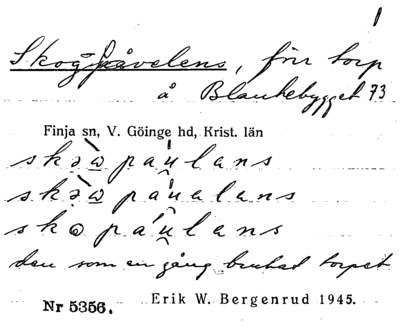 Skog-Påvelens, förr torp
å Blankebygget 73
Finja sn, V. Göinge hd, Krist. län
skəω paulans
skəω paualans
skω paulans
den som en gång brukat torpet
Nr 5356. Erik W. Bergenrud 1945.